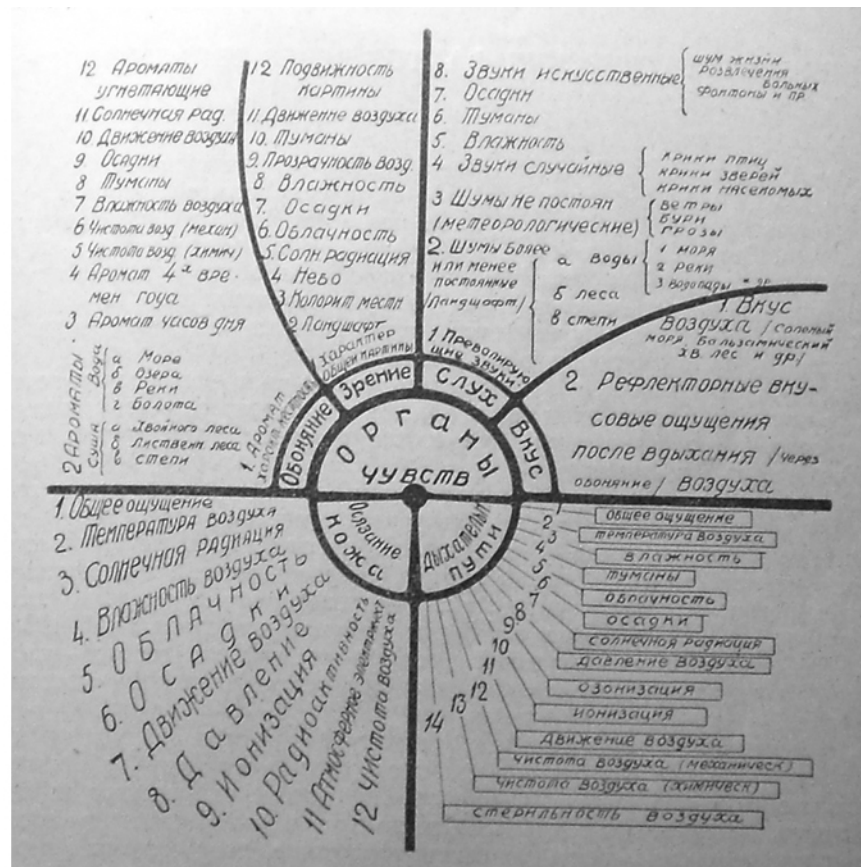 12 Ароматы
угнетающие
11 Солнечная рад.
10 Движение воздуха
9 Осадки
8 Туманы
7 Влажность воздуха
6 Чистота возд (механ)
5 Чистота возд. (химич)
4 Аромат 4х вре-
мен года
3 Аромат часов дня
2 Ароматы
Вода
а Море
б Озера
в Реки
г Болота
Суша
а Хвойного леса
б Лиственн. леса
в степи
1. Аромат
12 Подвижность
картины
11 Движение воздуха
10. Туманы
9. Прозрачность возд.
8. Влажность
7. Осадки
6. Облачность
5. Солн радиация
4 Небо
3 Колорит местн
2 Ландшафт
1 Характер
общей картины
8. Звуки искусственные
шум жизни
развлечения
больных
фонтаны и пр.
7. Осадки
6 Туманы
5. Влажность
4 Звуки случайные
крики птиц
крики зверей
крики насекомых
3 Шумы не постоян
(метеорологические)
ветры
бури
грозы
2. Шумы более
или менее
постоянные
/ландшафт/
а воды
1 моря
2 реки
3 водопады
б леса
в степи
1. Превалирую
щие звуки
1. Вкус
воздуха /соленый
моря, бальзамический
хв. лес и др/
2. Рефлекторные вку-
совые ощущения
после вдыхания /через
обоняние/ воздуха
Обоняние
Зрение
Слух
Вкус
Органы
чувств
Осязание
кожа
Дыхательн
пути
1. Общее ощущение
2. Температура воздуха
3. Солнечная радиация
4. Влажность воздуха
5. Облачность
6. Осадки
7. Движение воздуха
8. Давление
9. Ионизация
10. Радиоактивность
11 Атмосферное
12 Чистота воздуха
1 общее ощущение
2 температура воздуха
3 влажность
4 туманы
5 облачность
6 осадки
7 солнечная радиация
8 давление воздуха
9 озонизация
10 ионизация
11 движение воздуха
12 чистота воздуха (механическ)
13 чистота воздуха (химическ)
14 стерильность воздуха